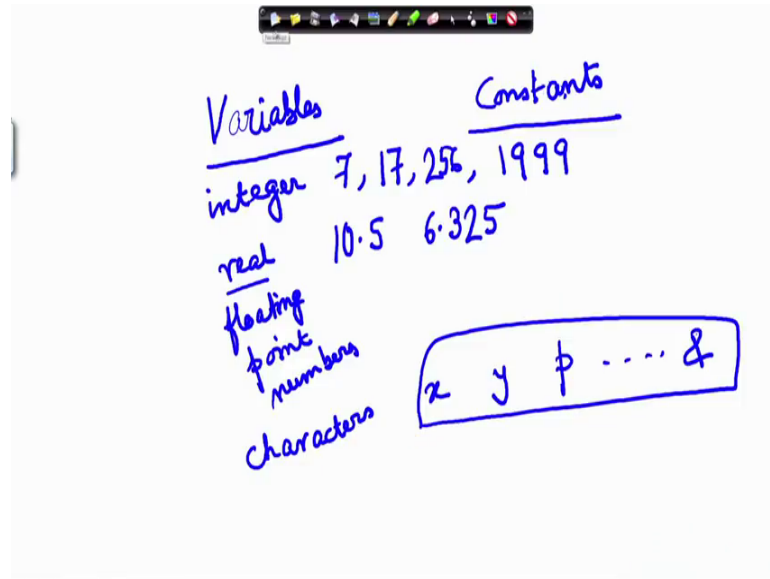 Variables Constants
integer 7, 17, 256, 1999
real 10.5 6.325
floating
point
numbers
x y p ..... &
characters